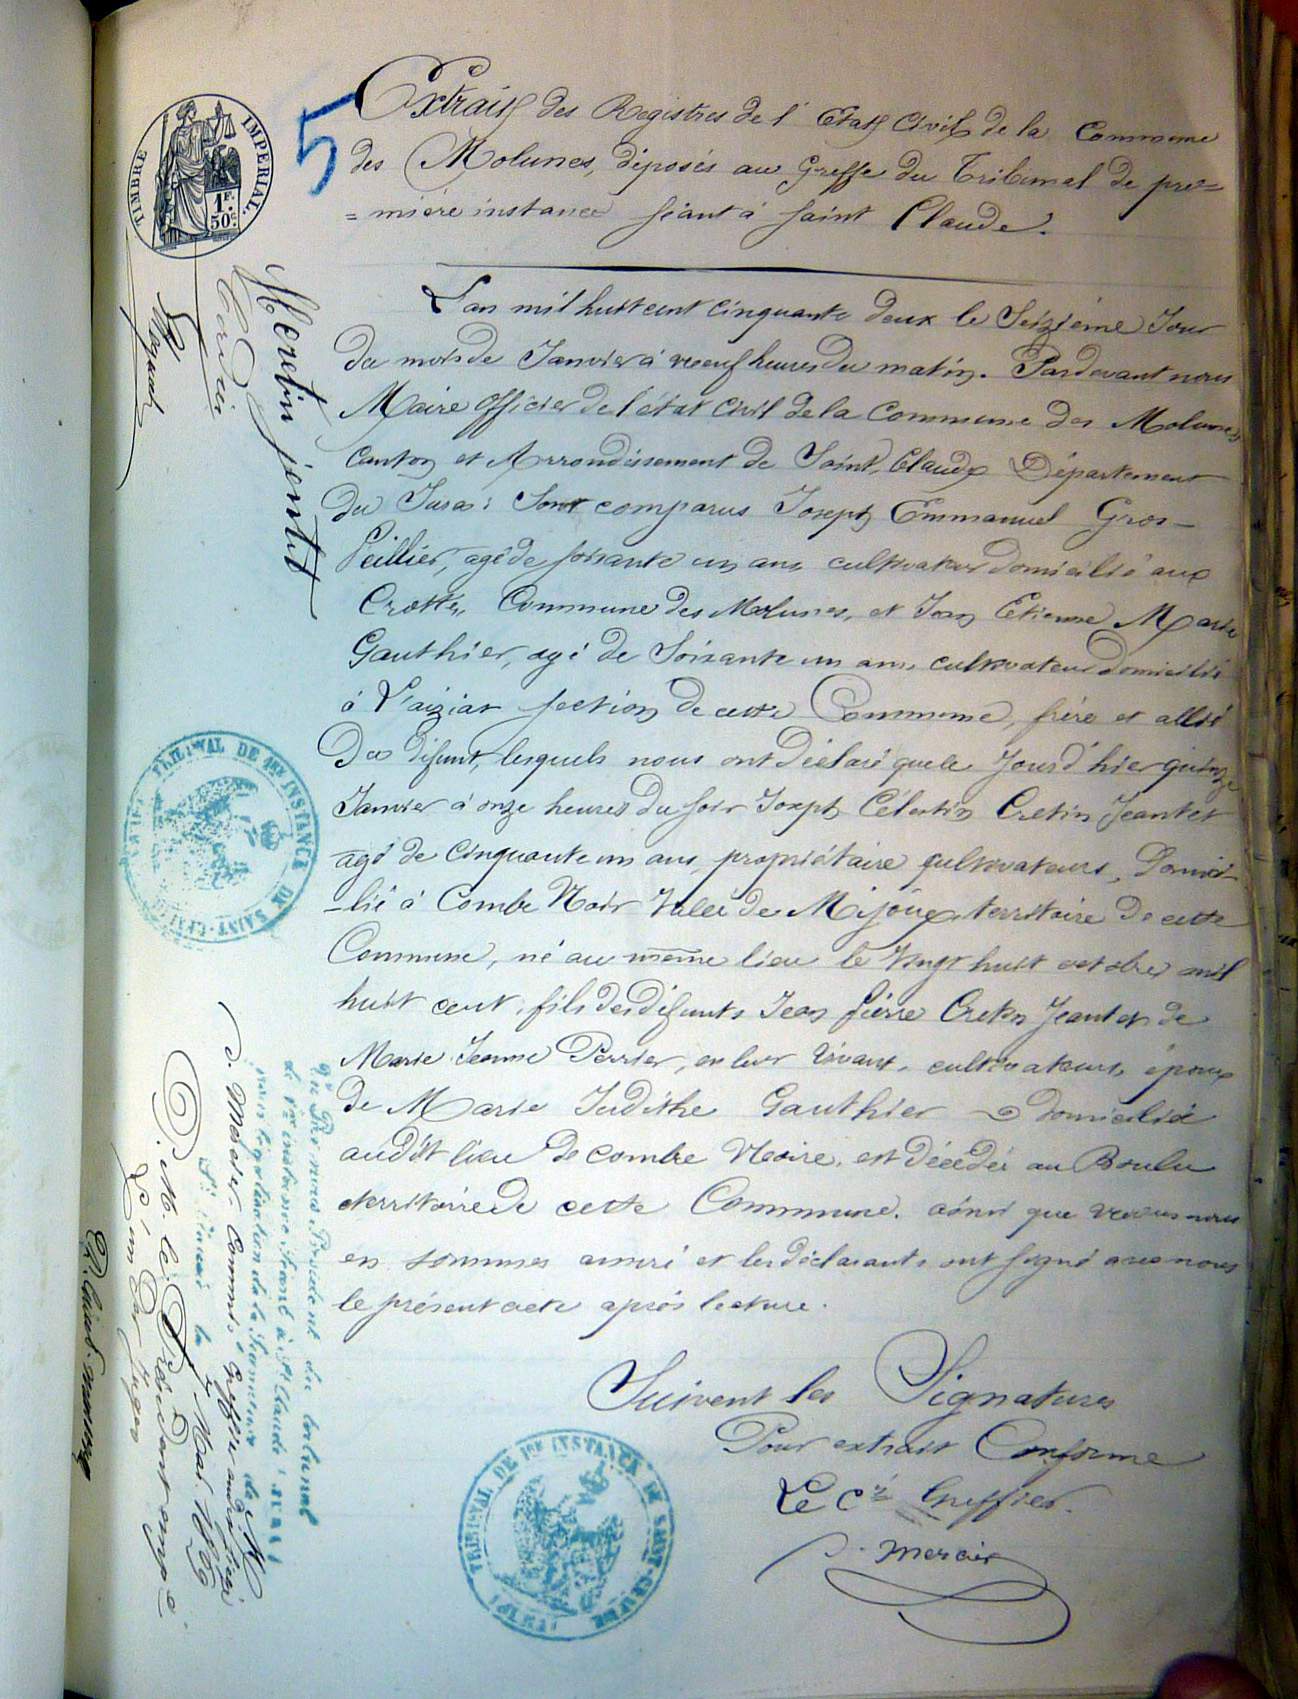 5
Extrait des Registres de l'Etat Civil de la Commune
des Molunes, déposés au Greffe du Tribunal de pre=
=mière instance séant à Saint Claude.
TIMBRE IMPERIAL.
1F. 50c.
L'an mil huit cent cinquante deux le Seizième Jour
du mois de Janvier à neuf heures du matin. Pardevant nous
Maire Officier de l'état civil de la Commune des Molunes
Canton et Arrondissement de Saint Claude Département
du Jura: Sont comparus Joseph Emmanuel Gros-
Peillier, agé de soixante un ans cultivateur domicilié aux
Crottes, Commune des Molunes, et Jean Etienne Marie
Gauthier, agé de Soixante un ans, cultivateur domicilié
à L'aiziar section de cette Commune, frère et allié
Du défunt, lesquels nous ont Déclaré que le Jour d'hier quinze
Janvier à onze heures du soir Joseph Célestin Cretin Jeantet
agé de cinquante un ans, propriétaire cultivateurs, Domici-
-lié à Combe Noir Valée de Mijoux, territoire de cette
Commune, né au même lieu le Vingt huit octobre mil
huit cent, fils des défunts Jean Pierre Cretin Jeantet et de
Marie Jeanne Perrier, en leur Vivant, cultivateurs, époux
de Marie Judithe Gauthier domiciliée
audit lieu de combe Noire, est Décédé au Boulu
territoire de cette Commune. ainsi que nous nous
en sommes assuré et les déclarants ont signé avec nous
le présent acte après lecture.
Suivent les Signatures
Pour extrait Conforme
Le Cis Greffier.
Mercier
TRIBUNAL DE 1RE INSTANCE DE SAINT-CLAUDE
TRIBUNAL DE 1RE INSTANCE DE SAINT-CLAUDE
Vu Par nous Président du tribunal
de 1re instance séant à St Claude (Jura)
pour légalisation de la signature de M
Mercier Commis Greffier
St Claude le Mai
P. M. le Président empêché
L'un des Juges